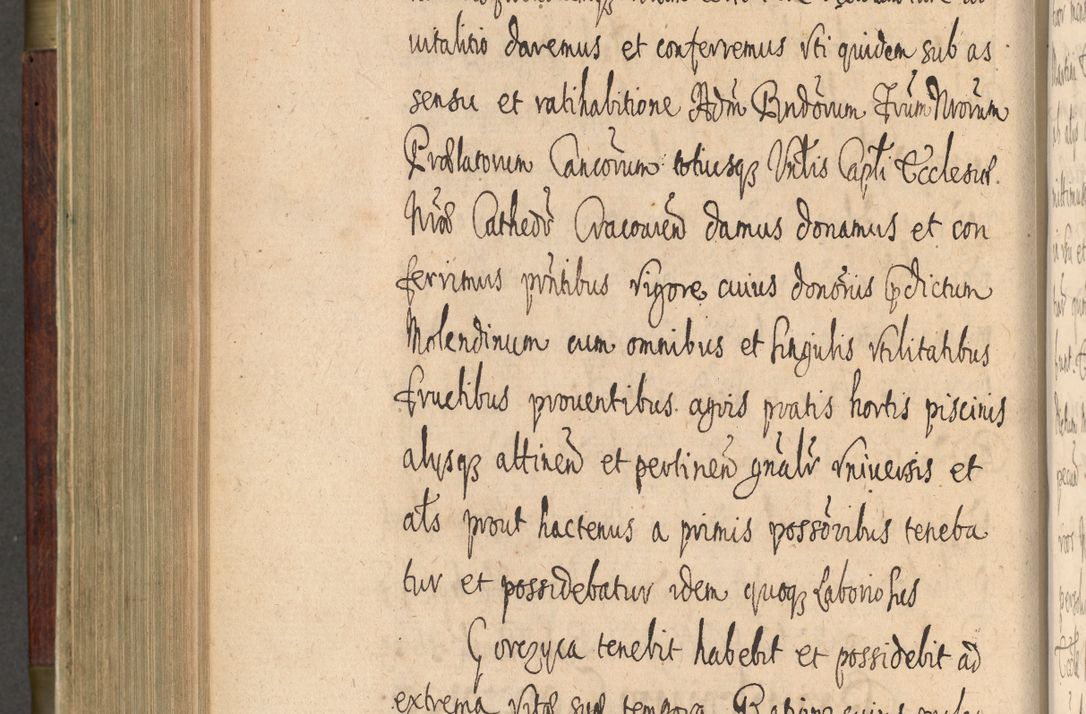 uitalitio daremus et conferremus vti quidem sub as
sensu et ratihabitione Adm Rndorum Frum Nrorum
Praelatorum Canconrum totiusq Vntis Capti Ecclesiae
Nrae Cathedr Cracouien damus donamus et con
ferimus pntibus vigore cuius donoris pdictum
Molendinum cum omnibus et singulis vtilitatibus
fructibus prouentibus agris pratis hortis piscinis
alysq attinen et pertinen gnalr vniuersis et
als prout hactenus a primis possoribus teneba
tur et possidebatur idem quoq Laboriosus
Gorczyca tenebit habebit et possidebit ad
extrema vitae suae tempora